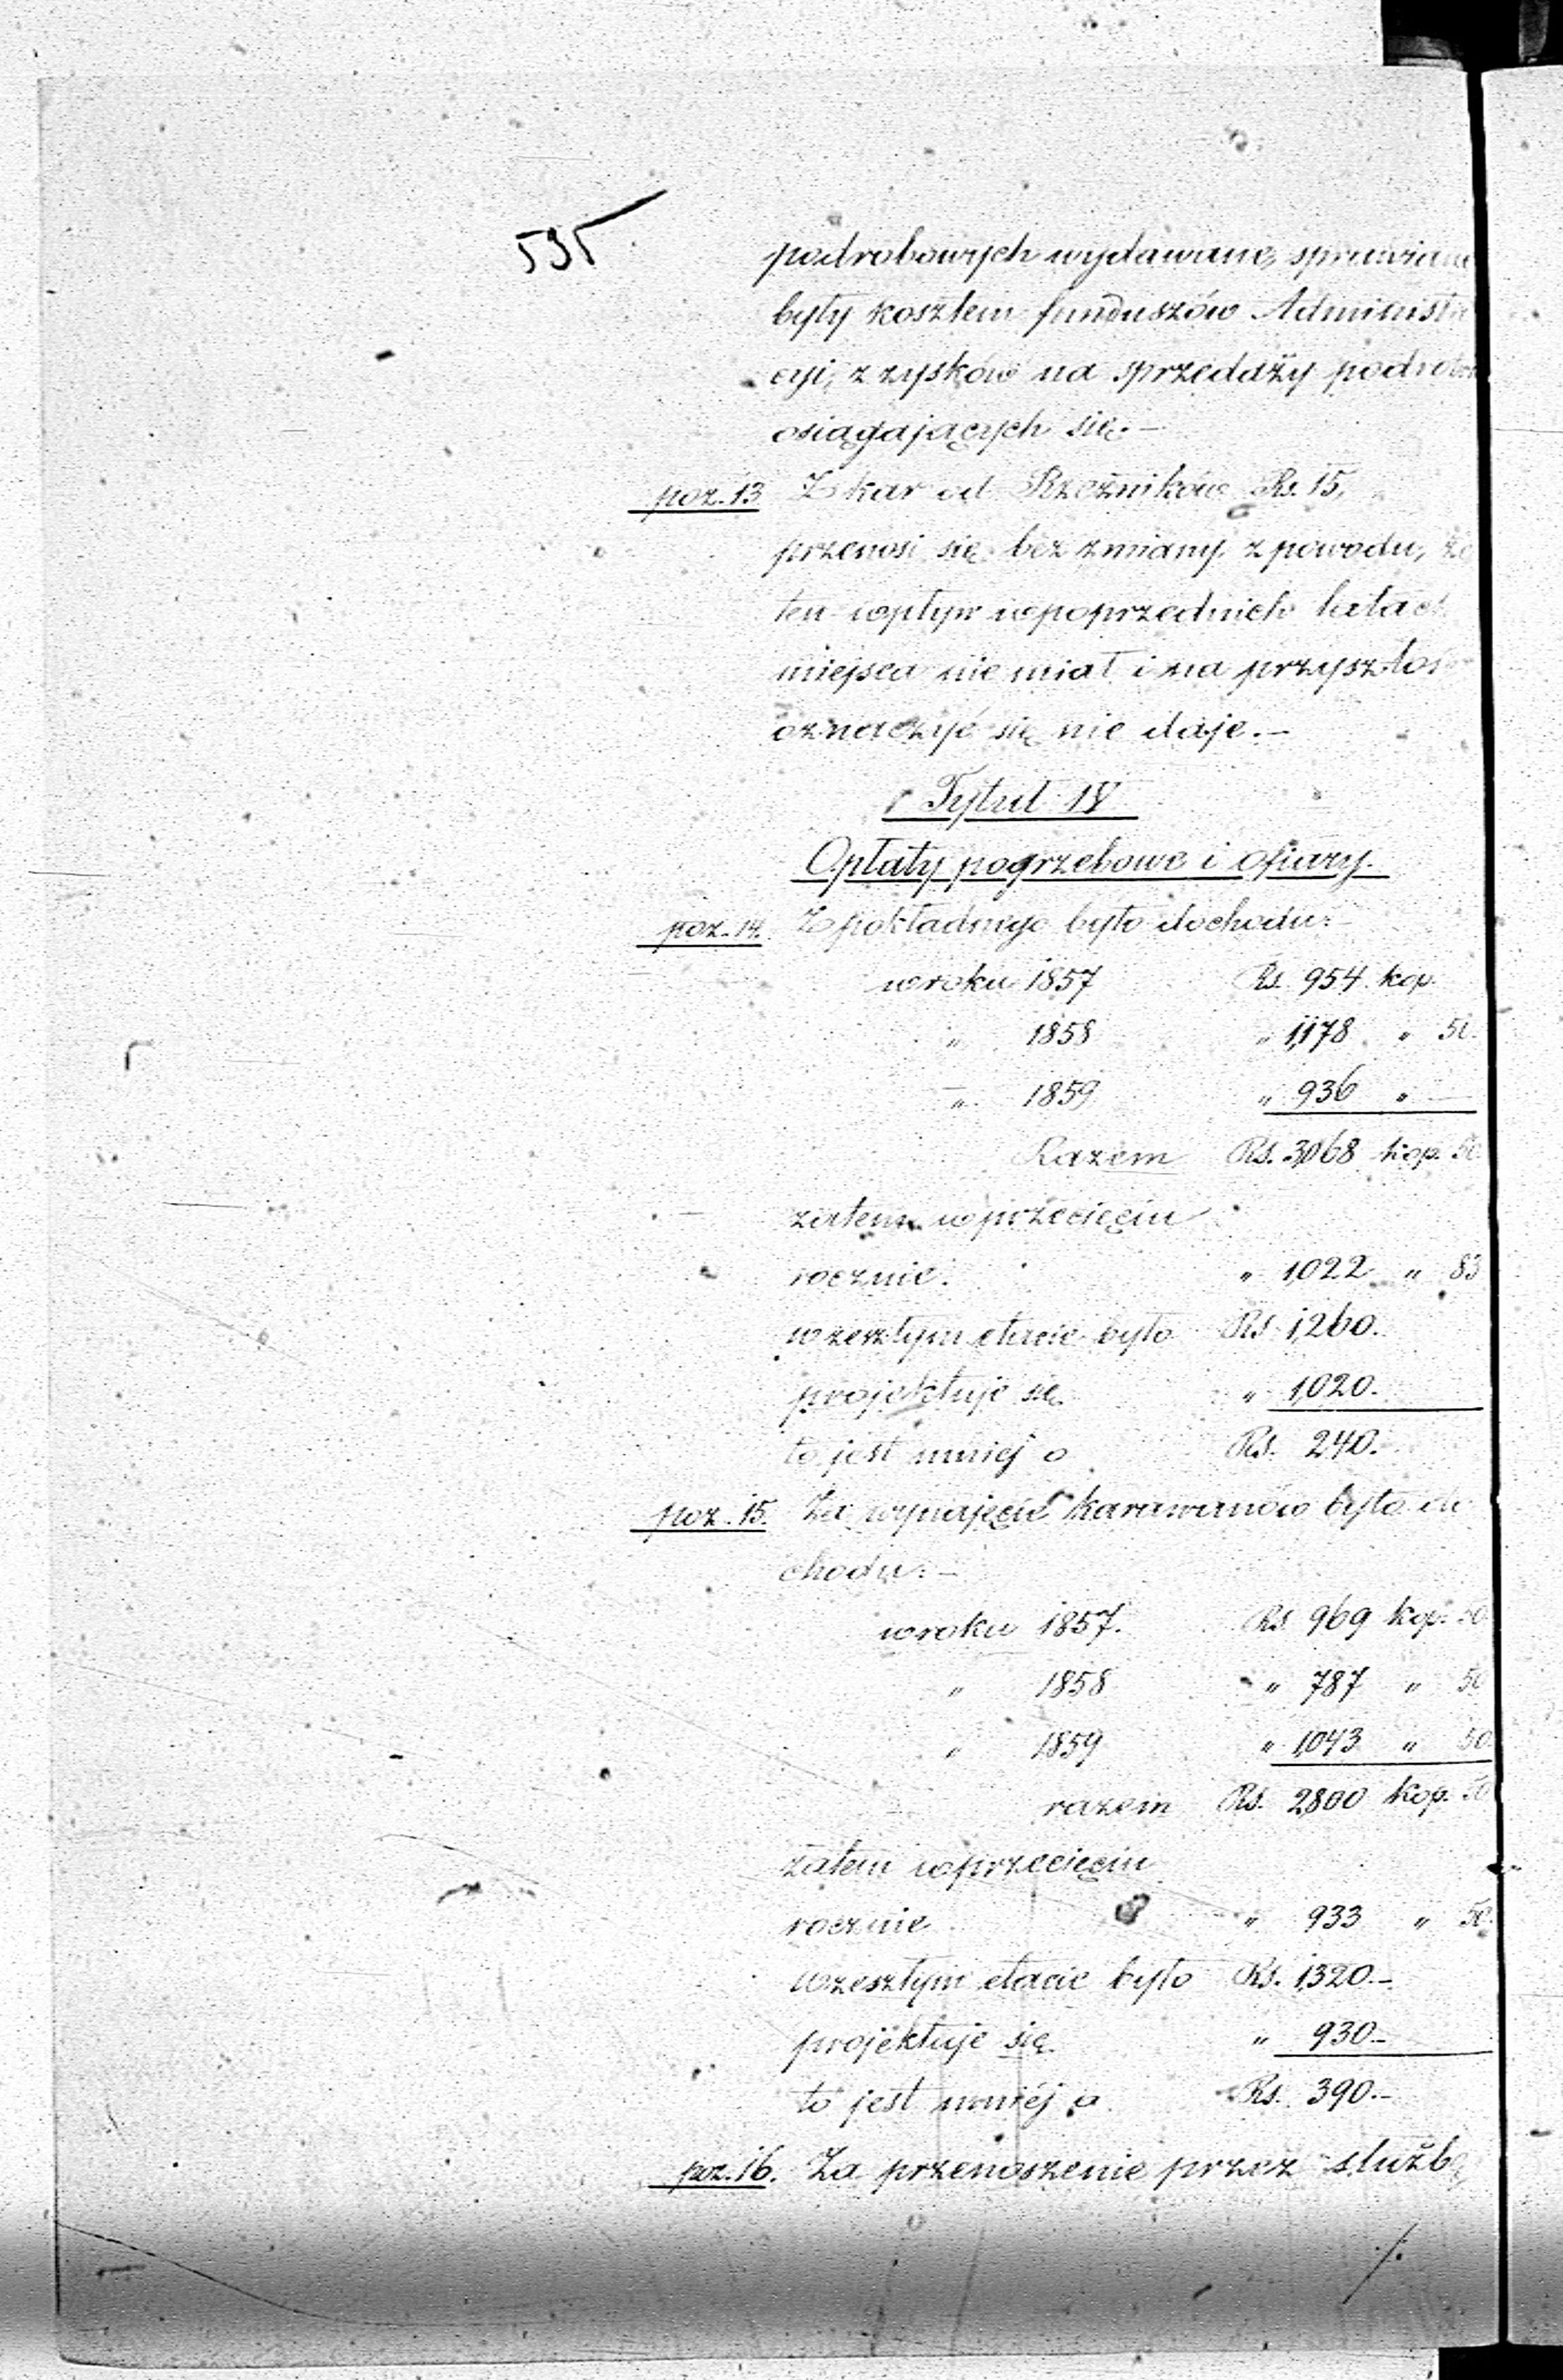 535
podrobowych wydawane, sprawiane
były kosztem funduszów Administra
cyi, z zysków na sprzedaży podrobów
osiągających się.—
poz. 13 Z kar od Rzeźników Rs. 15,
przenosi się bez zmiany z powodu, że
ten wpływ w poprzednich latach
miejsca nie miał i na przyszłość
oznaczyć się nie daje.—
Tytuł IV
Opłaty pogrzebowe i ofiary.
poz. 14. Z pokładnego było dochodu:—
w roku 1857 Rs. 954 kop.
„ 1858 „ 1,178 „ 50.
„ 1859 „ 936 „ —
Razem Rs. 3,068 kop. 50
zatem w przecięciu
rocznie. „ 1,022 „ 83
w zeszłym etacie było Rs. 1,260.
projektuje się „ 1,020.
to jest mniej o Rs. 240.
poz. 15. Za wynajęcie karawanów było do
chodu:—
w roku 1857. Rs. 969 kop. 50
„ 1858 „ 787 „ 50
„ 1859 „ 1,043 „ 50
razem Rs. 2,800 kop. 50
zatem w przecięciu
rocznie „ 933 „ 50.
w zeszłym etacie było Rs. 1,320.—
projektuje się „ 930—
to jest mniéj o Rs. 390.—
poz. 16. Za przenoszenie przez służbę
./.